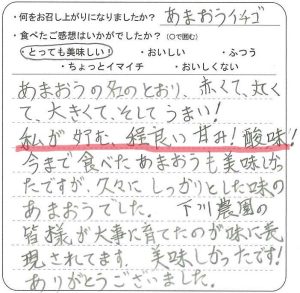 ・何をお召し上がりになりましたか？ あまおうイチゴ
・食べたご感想はいかがでしたか？（○で囲む）
・とっても美味しい！ ・おいしい ・ふつう
・ちょっとイマイチ ・おいしくない
あまおうの名のとおり、赤くて、丸くて
、大きくて、そしてうまい！
私が好む、程良い甘み！酸味！
今まで食べたあまおうも美味しかっ
たですが、久々にしっかりとした味の
あまおうでした。 下川農園の
皆様が大事に育てたのが味に表
現されてます。 美味しかったです！
ありがとうございました。